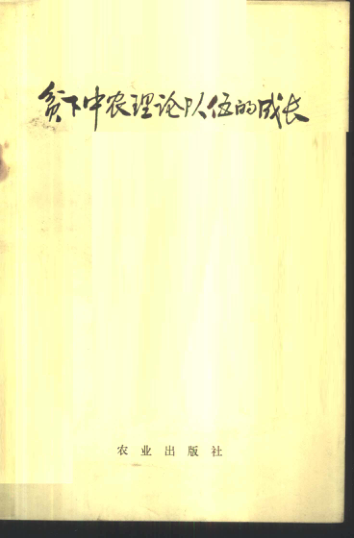 贫下中农理论队伍的成长
农业出版社